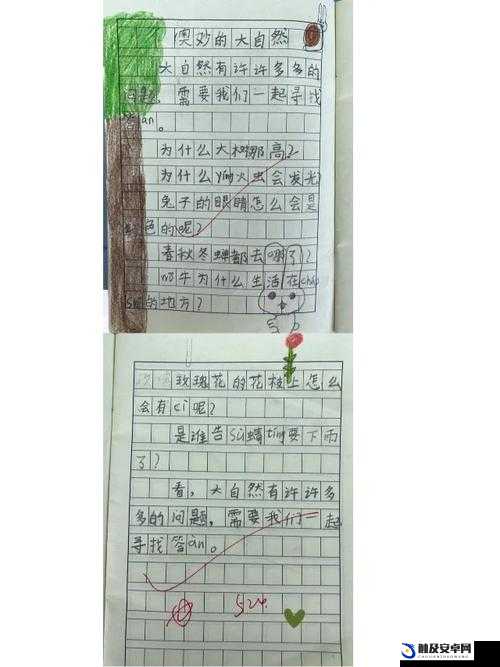 奥妙的大自然
大自然有许许多多的
问题，需要我们一起寻找
答àn。
为什么大树那高？
为什么yíng火虫会发光？
兔子的眼睛怎么会是
色的呢？
春秋冬蝉都去哪了？
牛为什么生活在cháo
的地方？
玫瑰花的花枝上怎么
会有cì呢？
是谁告sù蜻tíng要下雨
了？
看，大自然有许许多
多的问题，需要我们一起
寻找答àn。
5.24.
触及安卓网